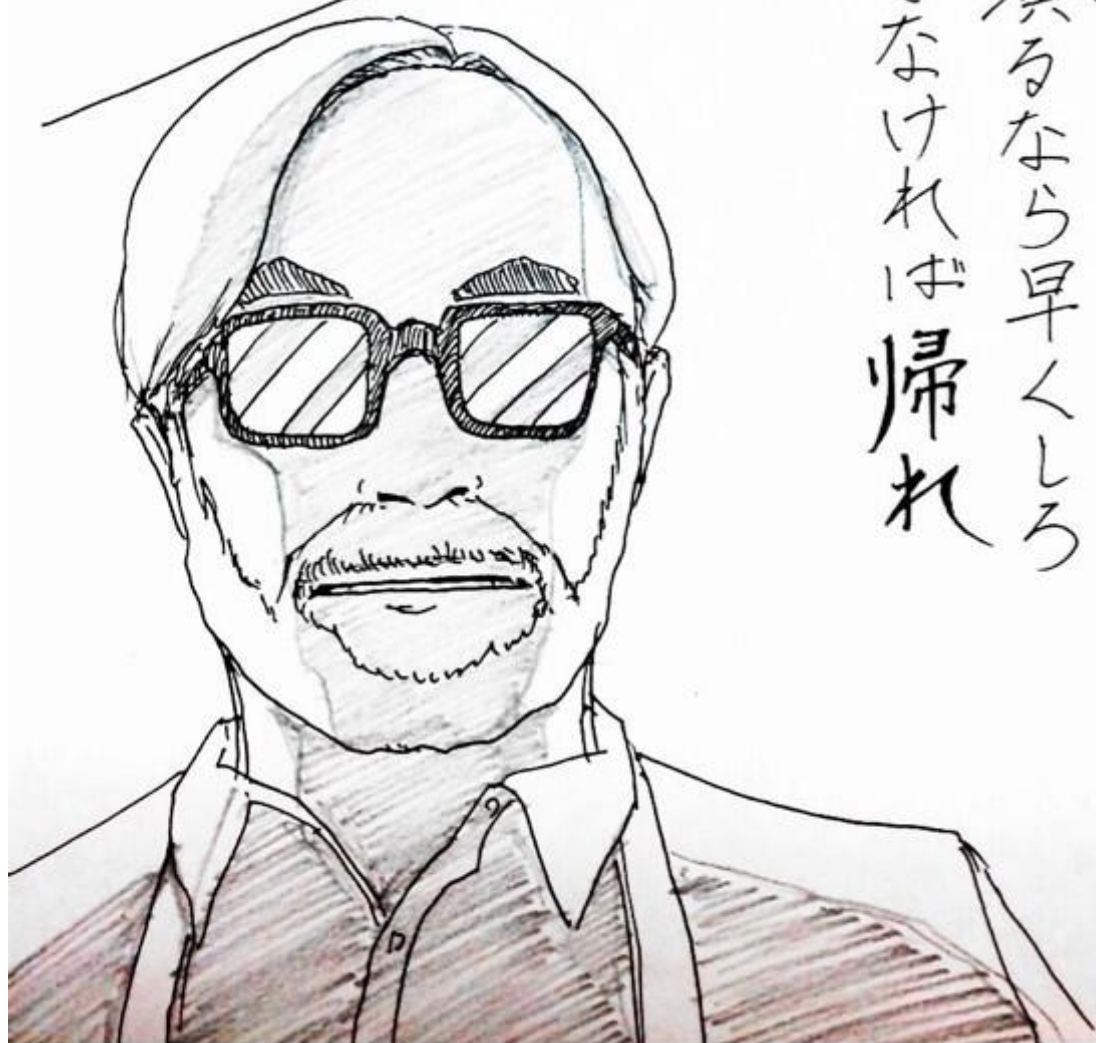 るなら早くしろ
なければ帰れ